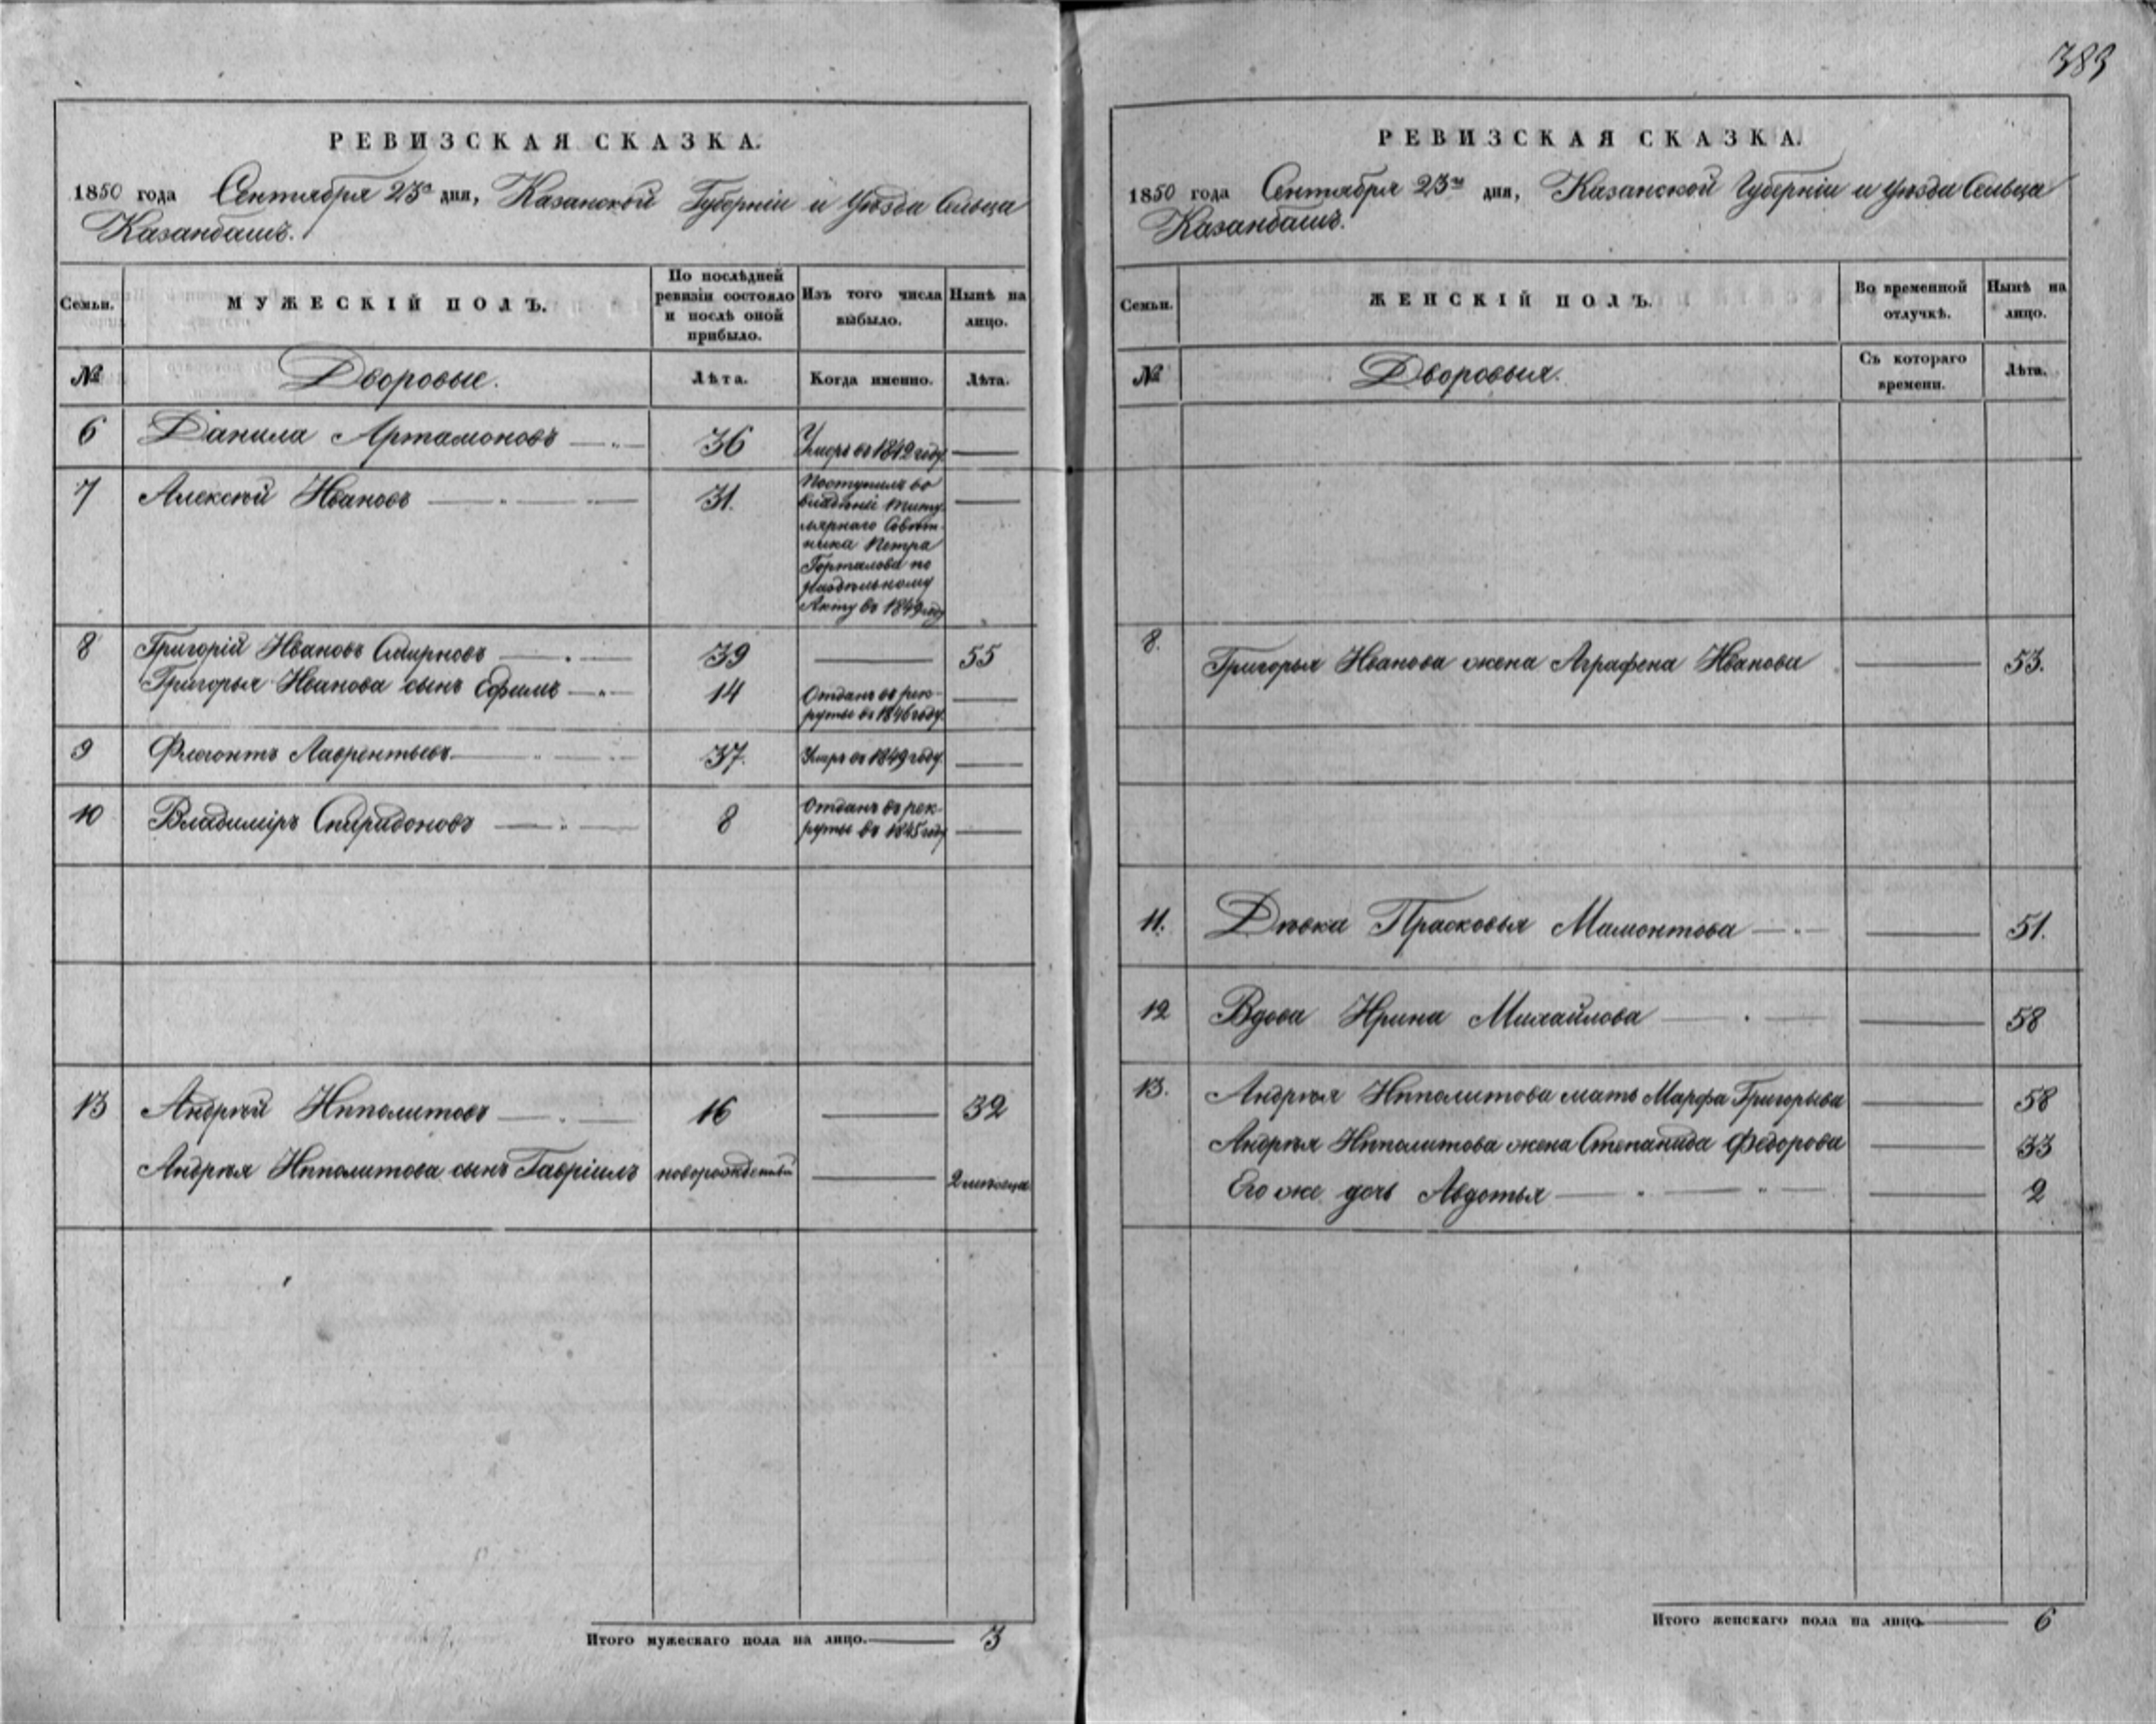 383
РЕВИЗСКАЯ СКАЗКА.
1850 года Сентября 23го дня, Казанской Губерніи и уѣзда Сельца
Казанбашъ.
Семьи. МУЖЕСКІЙ ПОЛЪ. По послѣдней ревизіи состояло и послѣ оной прибыло. Изъ того числа выбыло. Нынѣ на лицо.
№ Дворовые. Лѣта. Когда именно. Лѣта.
6 Данила Артамоновъ 36 Умеръ въ 1842 году.
7 Алексѣй Ивановъ 31. Поступилъ во
владѣніе Титу
лярнаго Совѣт-
ника Петра
Горталова по
раздѣльному
Акту въ 1849 году
8 Григорій Ивановъ Смирновъ 39 55
Григорья Иванова сынъ Ефимъ 14 Отданъ въ рек-
руты въ 1846 году.
9 Флегонтъ Лаврентьевъ 37. Умеръ въ 1849 году.
10 Владиміръ Спиридоновъ 8 Отданъ въ рек-
руты въ 1845 году
13 Андрей Ипполитовъ 16 32
Андрея Ипполитова сынъ Гавріилъ новорожденный 2 месяца
Итого мужескаго пола на лицо. 3
РЕВИЗСКАЯ СКАЗКА.
1850 года Сентября 23го дня, Казанской Губерніи и уѣзда Сельца
Казанбашъ.
Семьи. ЖЕНСКІЙ ПОЛЪ. Во временной отлучкѣ. Нынѣ на лицо.
№ Дворовыя. Съ котораго времени. Лѣта.
8. Григорья Иванова жена Аграфена Иванова 53.
11. Дѣвка Прасковья Мамонтова 51.
12 Вдова Ирина Михайлова 58
13. Андрея Ипполитова мать Марфа Григорьева 58
Андрея Ипполитова жена Степанида Федорова 33
Его же дочь Авдотья 2
Итого женскаго пола на лицо 6